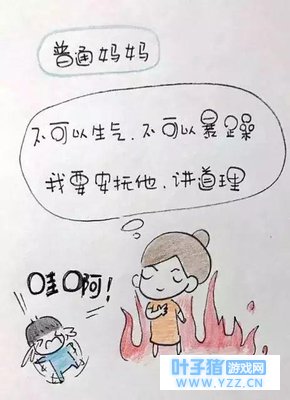 普通妈妈
不可以生气.不可以暴躁
我要安抚他.讲道理
哇啊!
叶子猪游戏网
www.YZZ.CN